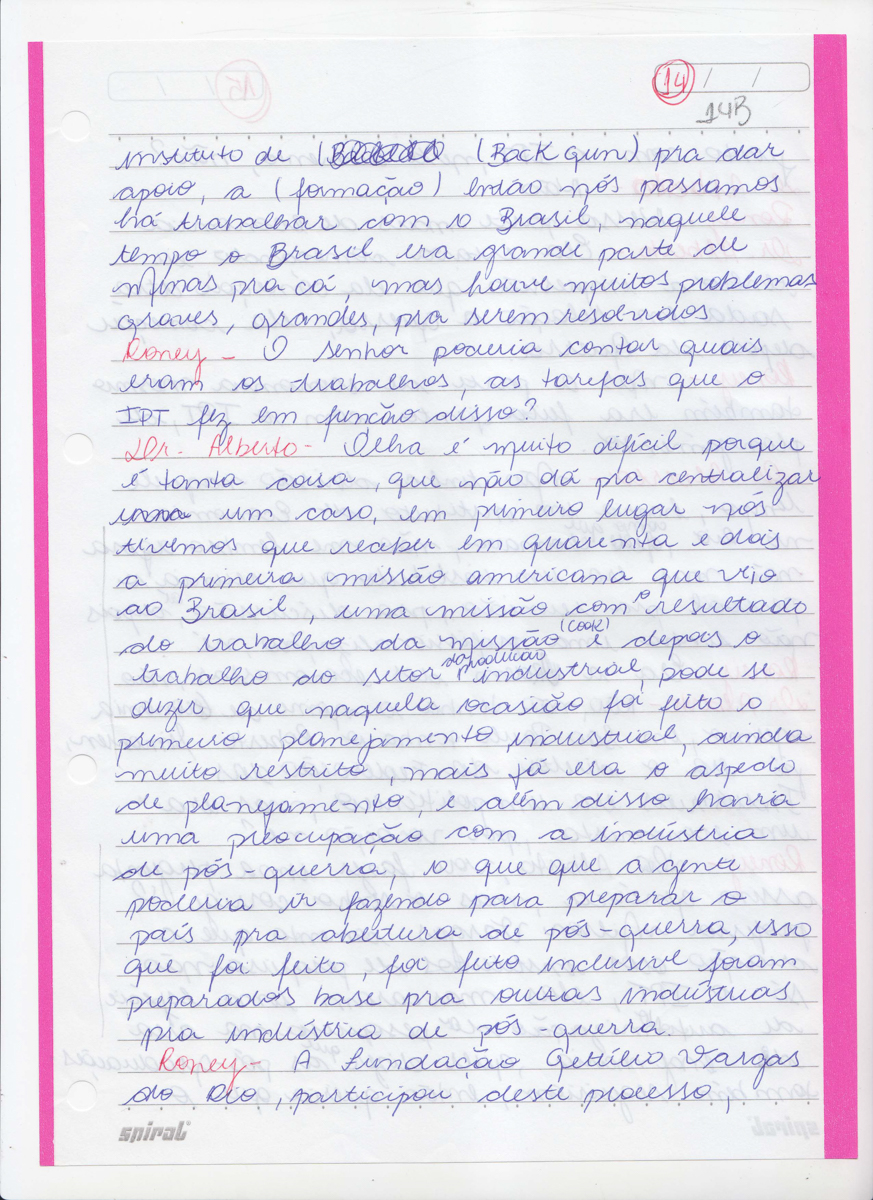 14 / /
14B
instituto de ( (Back gun) pra dar
apoio, a (formação) então nós passamos
há trabalhar com o Brasil, naquele
tempo o Brasil era grande parte de
Minas pra cá, mas houve muitos problemas
graves, grandes, pra serem resolvidos
Roney - O senhor poderia contar quais
eram os trabalhos, as tarefas que o
IPT fez em função disso?
Dr. Alberto - Olha é muito difícil porque
é tanta coisa, que não dá pra centralizar
um caso, em primeiro lugar nós
tivemos que receber em quarenta e dois
a primeira missão americana que veio
ao Brasil, uma missão com o resultado
do trabalho da missão (Cook) e depois o
trabalho do setor da produção industrial, pode se
dizer que naquela ocasião foi feito o
primeiro planejamento industrial, ainda
muito restrito, mais já era o aspecto
de planejamento, e além disso havia
uma preocupação com a indústria
de pós-guerra, o que que a gente
poderia ir fazendo para preparar o
país pra abertura de pós-guerra, isso
que foi feito, foi feito inclusive foram
preparados base pra outras indústrias
pra indústria de pós-guerra.
Roney - A Fundação Getúlio Vargas
do Rio, participou deste processo,
spiral